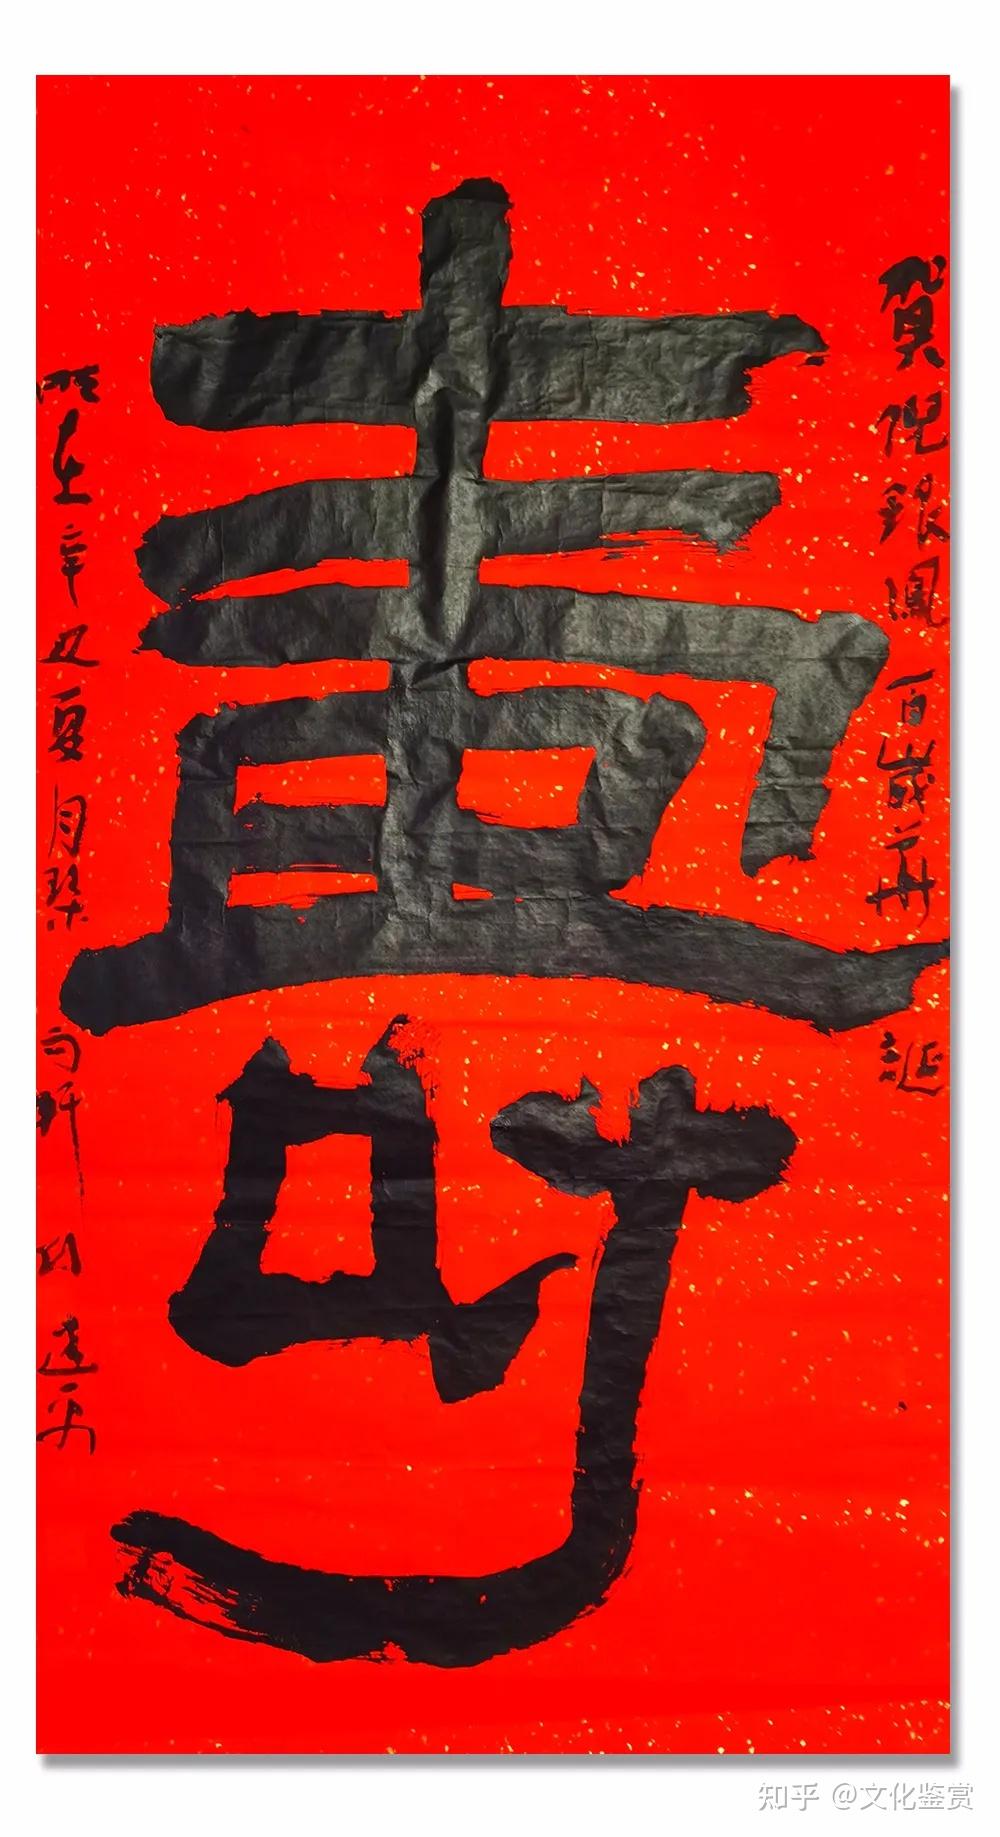 賀倪銀鳳百歲華誕
壽
時在辛丑夏月琴
知乎 @文化鉴赏